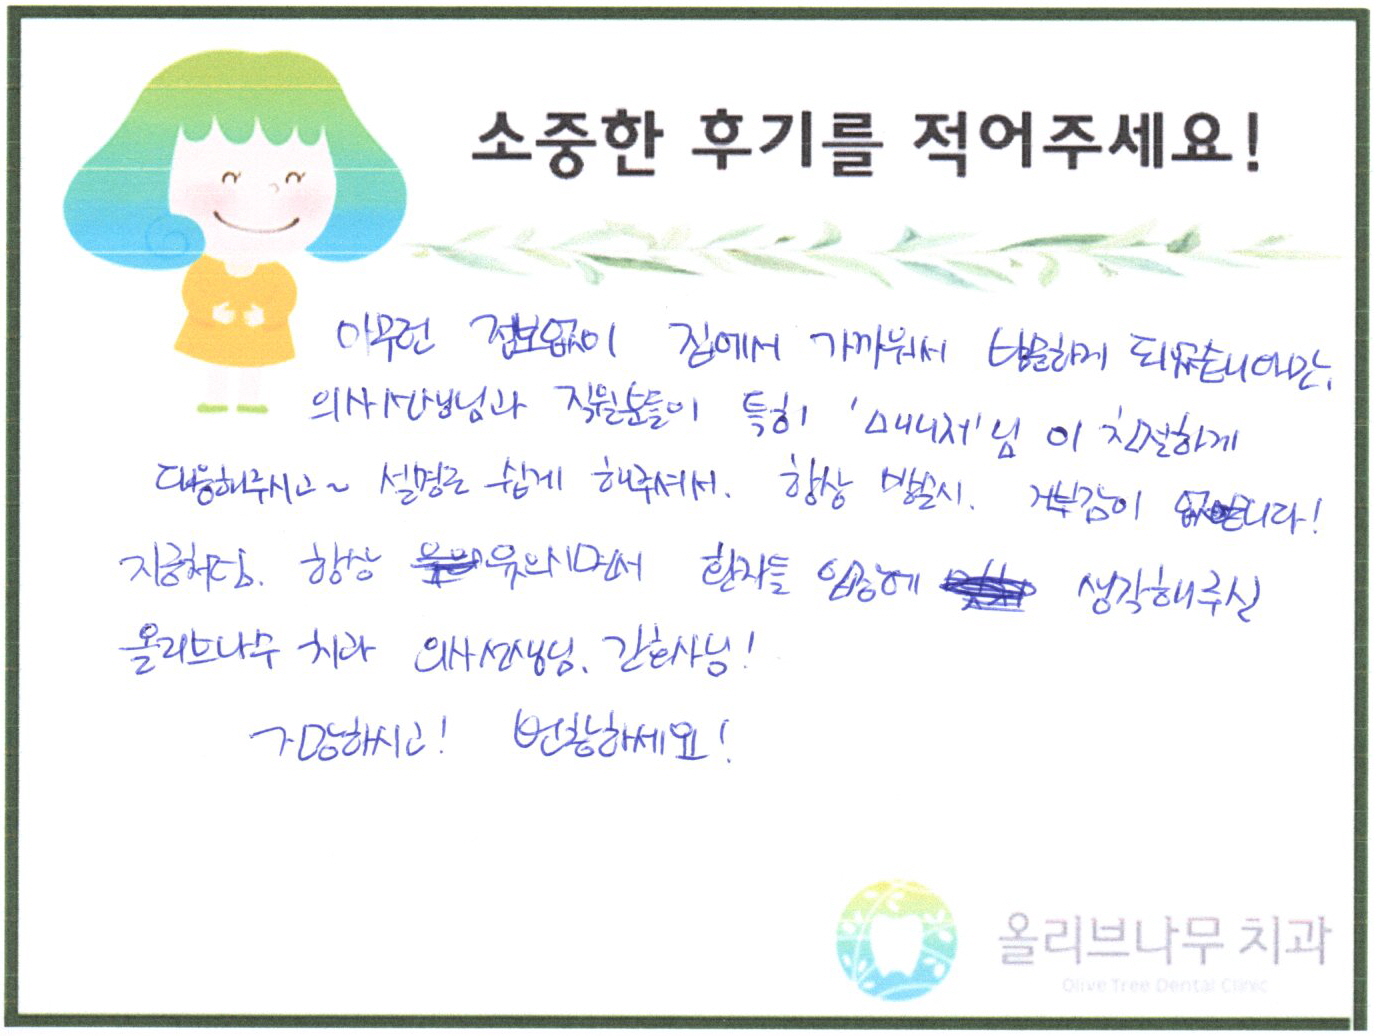 소중한 후기를 적어주세요!
아무런 정보없이 집에서 가까워서 방문하게 되었습니다만,
의사선생님과 직원분들이 특히 '매니저'님 이 친절하게
대응해주시고~ 설명도 쉽게 해주셔서. 항상 방문시. 거부감이 없습니다!
지금처럼. 항상 웃으시면서 환자들 입장에 생각해주실
올리브나무 치과 의사선생님, 간호사님!
건강하시고! 번창하세요!
올리브나무 치과
Olive Tree Dental Clinic